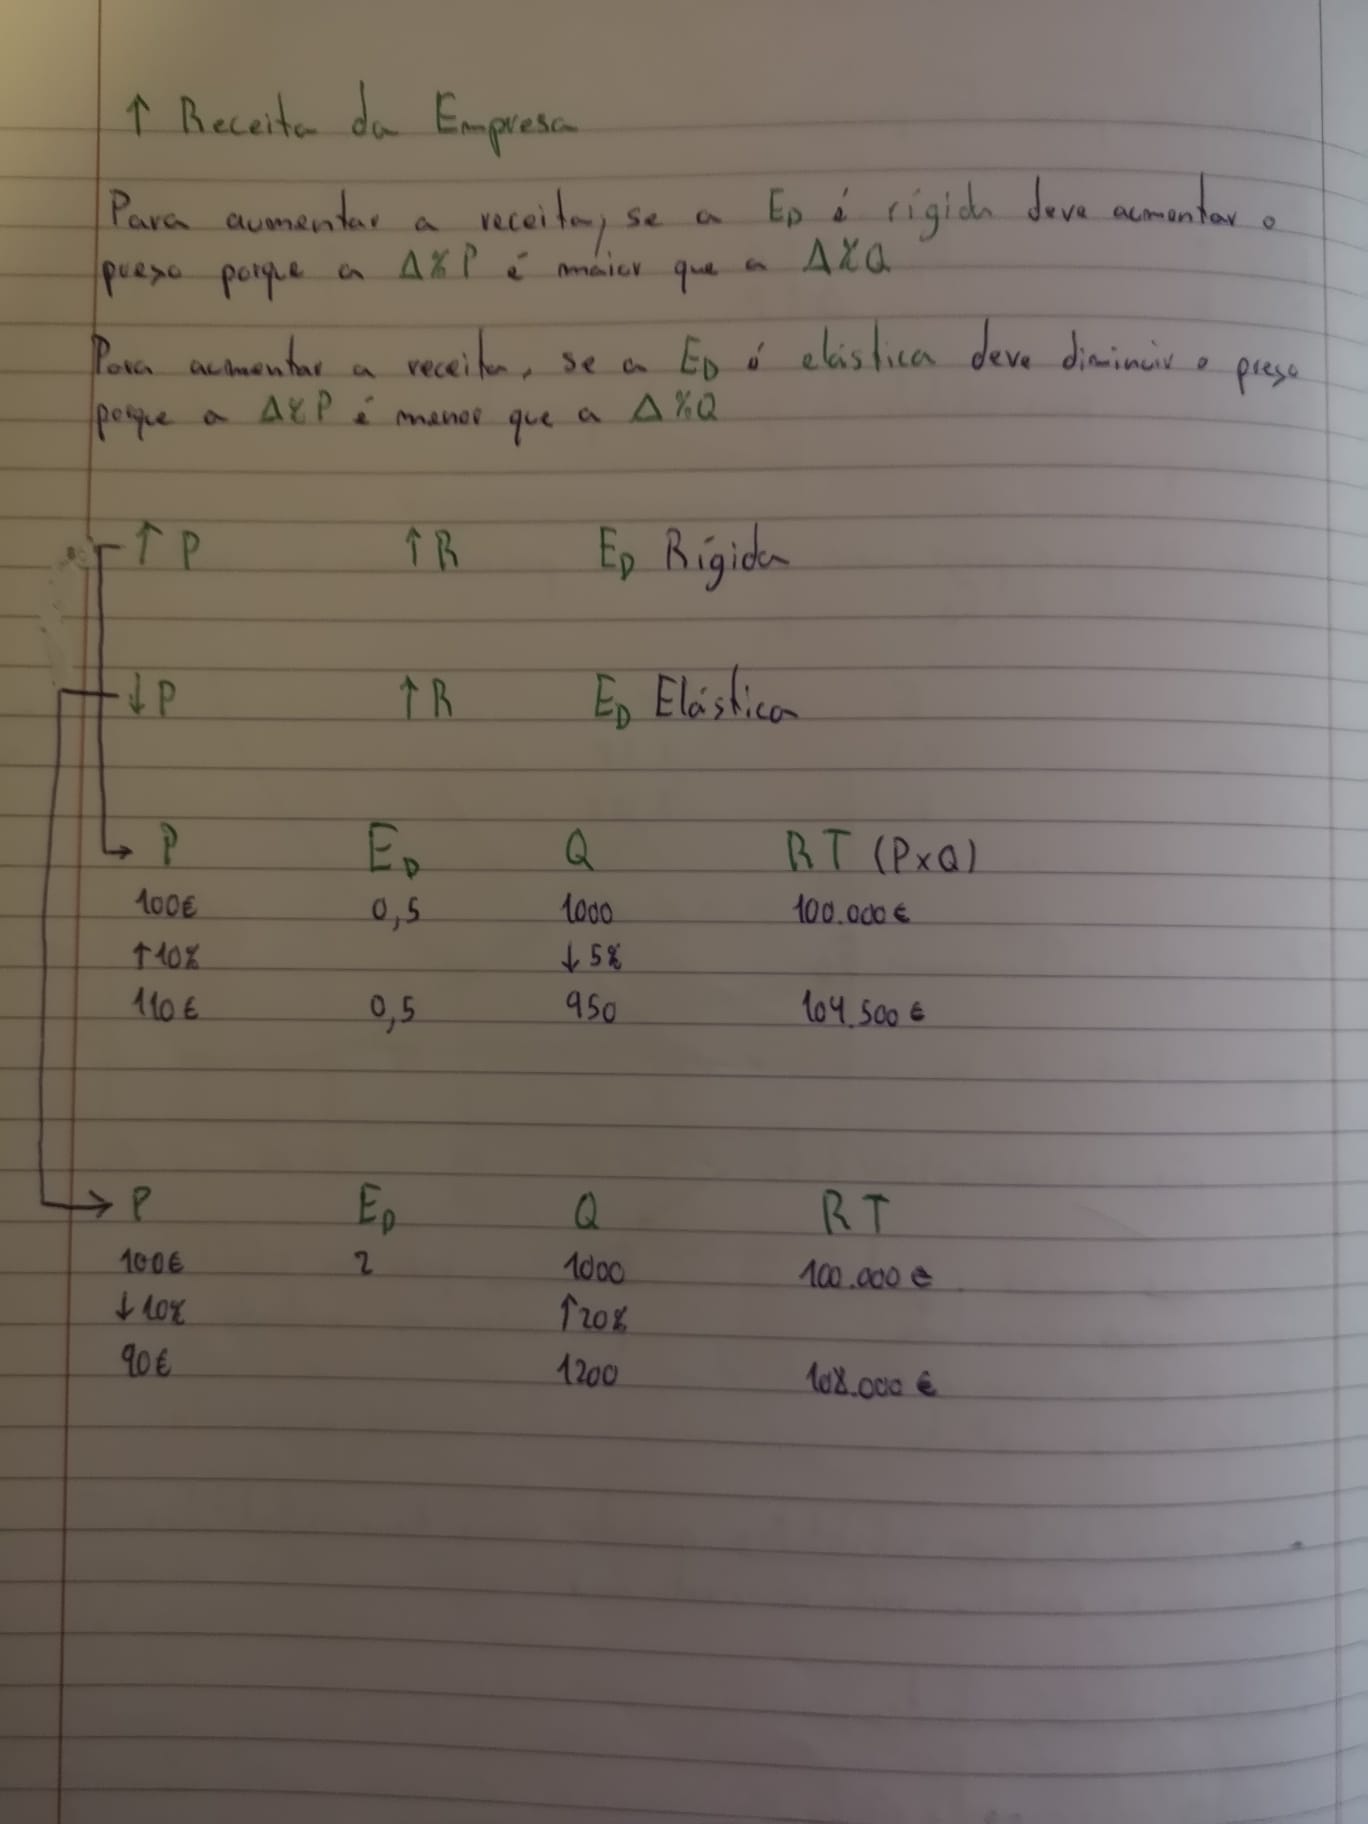 ↑ Receita da Empresa
Para aumentar a receita, se a ED é rígida deve aumentar o
preço porque a Δ%P é maior que a Δ%Q
Para aumentar a receita, se a ED é elástica deve diminuir o preço
porque a Δ%P é menor que a Δ%Q
↑ P ↑ R ED Rígida
↓ P ↑ R ED Elástica
P ED Q RT (PxQ)
100€ 0,5 1000 100.000€
↑10% ↓5%
110€ 0,5 950 104.500€
P ED Q RT
100€ 2 1000 100.000€
↓10% ↑20%
90€ 1200 108.000€